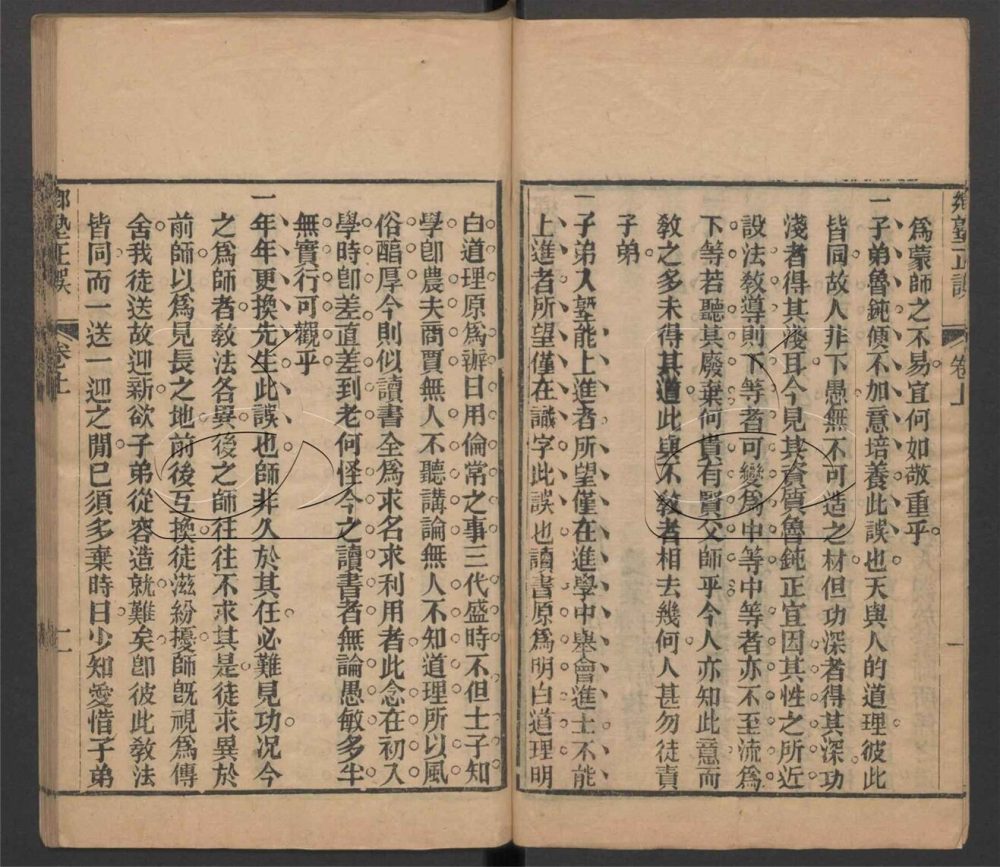 為蒙師之不易宜何如敬重乎
一子弟魯鈍便不加意培養此誤也天與人的道理彼此
皆同故人非下愚無不可造之材但功深者得其深功
淺者得其淺耳今見其資質魯鈍正宜因其性之所近
設法教導則下等者可變為中等中等者亦不至流為
下等若聽其廢棄何貴有賢父師乎今人亦知此意而
教之多未得其道此與不教者相去幾何人甚勿徒責
子弟
一子弟入塾能上進者所望僅在進學中舉會進士不能
上進者所望僅在識字此誤也讀書原為明白道理明
白道理原為辦日用倫常之事三代盛時不但士子知
學卽農夫商賈無人不聽講論無人不知道理所以風
俗醕厚今則似讀書全為求名求利用者此念在初入
學時卽差直差到老何怪今之讀書者無論愚敏多半
無實行可觀乎
一年年更換先生此誤也師非久於其任必難見功况今
之為師者教法各異後之師往往不求其是徒求異於
前師以為見長之地前後互換徒滋紛擾師旣視為傳
舍我徒送故迎新欲子弟從容造就難矣卽彼此教法
皆同而一送一迎之閒已須多棄時日少知愛惜子弟
鄉塾正誤
卷上
一
鄉塾正誤
卷上
二